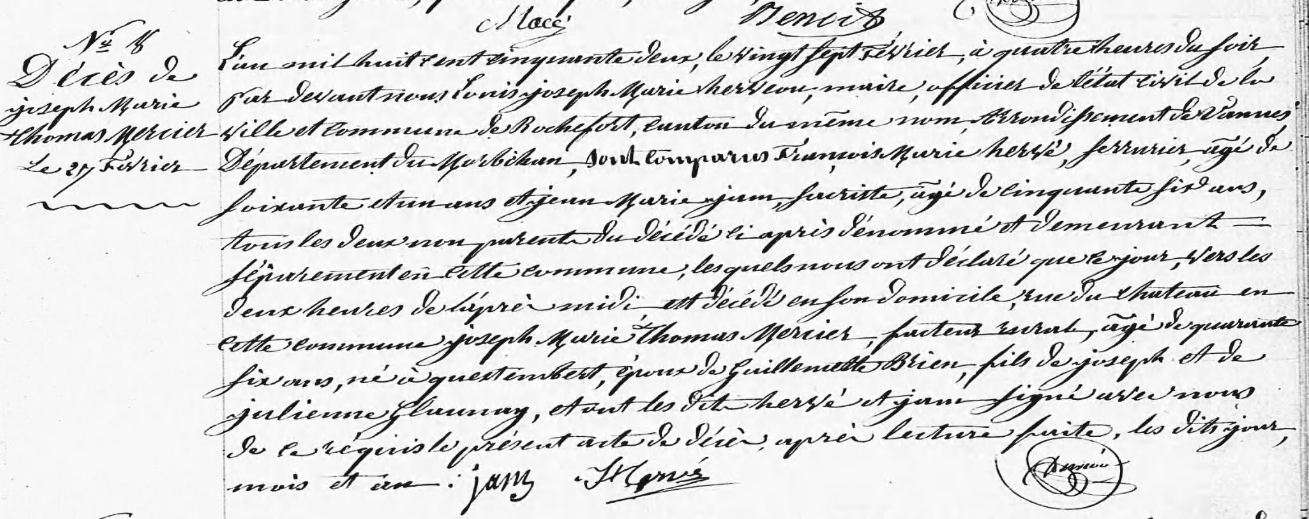 Macé Benoit
Nº 8
Décès de
joseph Marie
Thomas Mercier
Le 27 Février
L'an mil huit cent cinquante deux, le vingt sept Février, à quatre heures du soir
par devant nous Louis joseph Marie herveou, maire, officier de l'état civil de la
ville et commune de Rochefort, canton du même nom, Arrondissement de Vannes
Département du Morbihan, sont comparus François Marie hervé, serrurier, âgé de
soixante et un ans et jean Marie jam, sacriste, âgé de cinquante six ans,
tous les deux non parents du décédé ci après dénommé et demeurant
séparement en cette commune, lesquels nous ont déclaré que ce jour, vers les
deux heures de l'après midi, est décédé en son domicile, rue du chateau en
cette commune joseph Marie Thomas Mercier, facteur rural, âgé de quarante
six ans, né à questembert, époux de Guillemette Brien, fils de joseph et de
julienne Glaunay, et ont les dits hervé et jam signé avec nous
de ce réquis le présent acte de décès, après lecture faite, les dits jour,
mois et an : jam Hervé